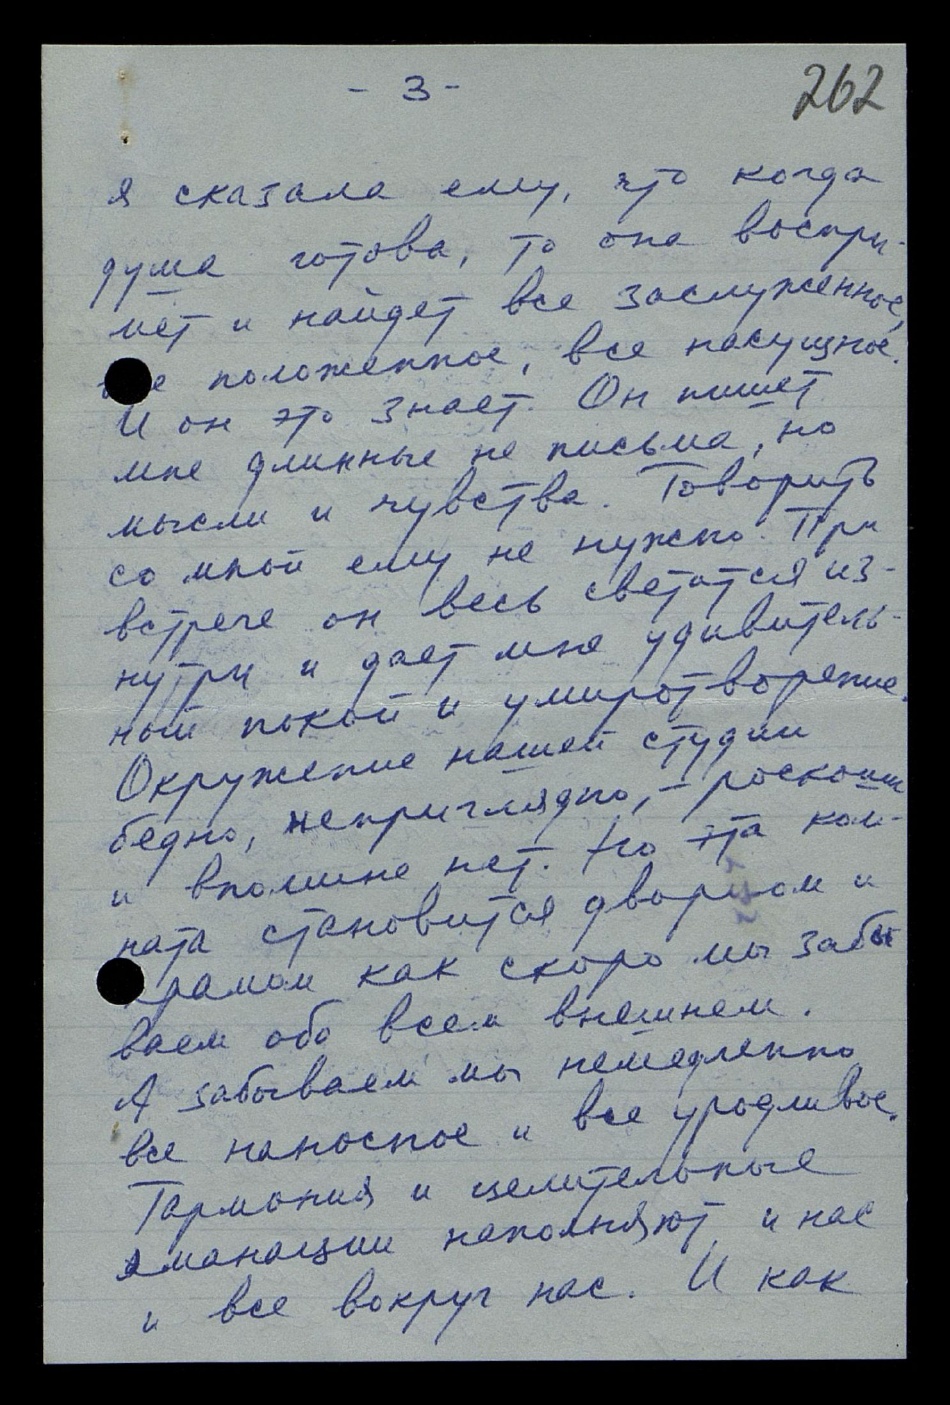 - 3 -
262
я сказала ему, что когда
душа готова, то она воспри-
мет и найдет все заслуженное,
все положенное, все насущное.
И он это знает. Он пишет
мне длинные не письма, но
мысли и чувства. Говорить
со мной ему не нужно. При
встрече он весь светится из-
нутри и дает мне удивитель-
ный покой и умиротворение.
Окружение нашей студии
бедно, неприглядно, - роскоши
и впомине нет. Но эта ком-
ната становится дворцом и
храмом как скоро мы забы
ваем обо всем внешнем.
А забываем мы немедленно
все наносное и все уродливое.
Гармония и целительные
эманации наполняют и нас
и все вокруг нас. И как